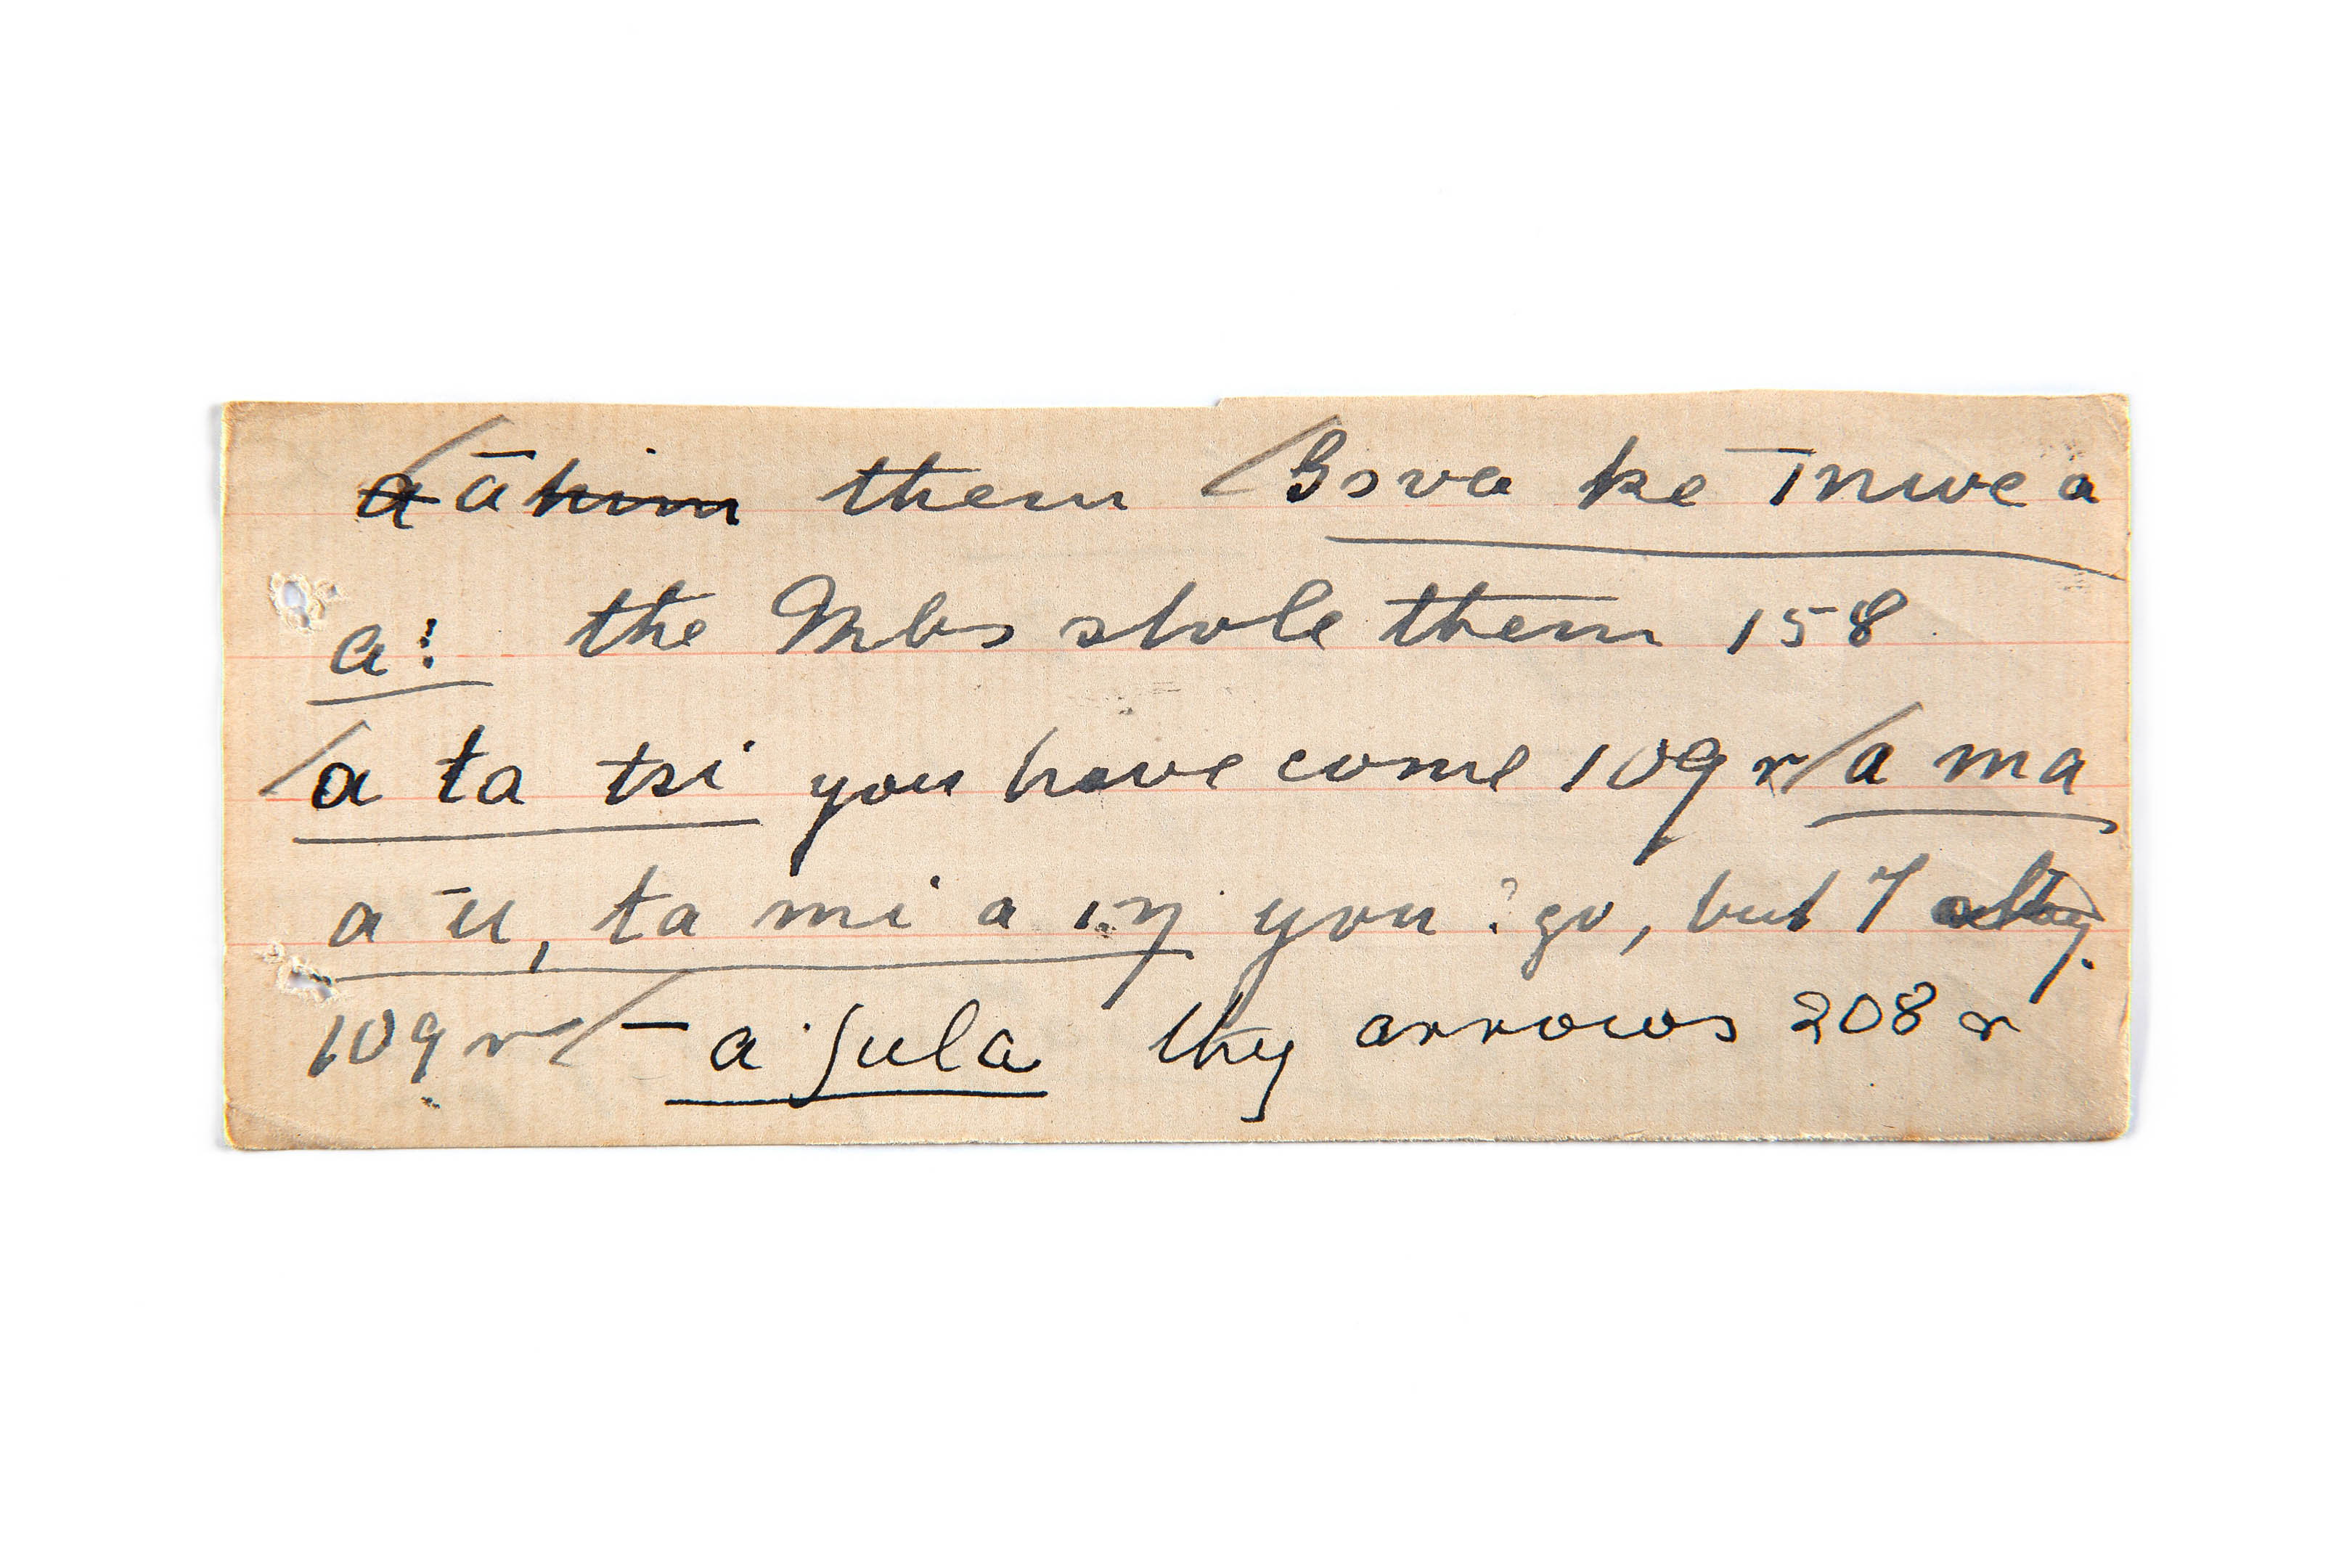 a ā him them / Bsva ke īnwe a
a: the Mbs stole them 158
/ a ta tsi you have come 109 r / a ma
a ū, ta mi a in you ? go, but I
109 r / – a ʃula thy arrows 208 r